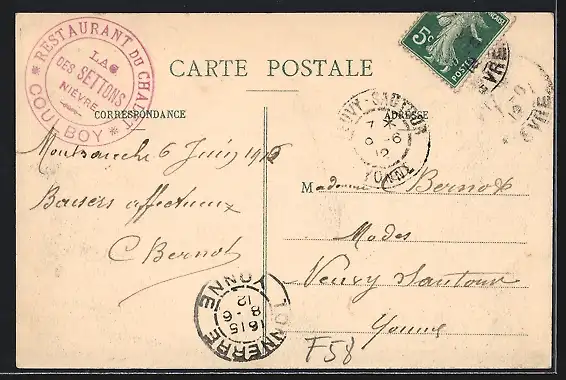 RESTAURANT DU CHALET
LAC
DES SETTONS
NIÈVRE
COULBOY
CARTE POSTALE
5c
POSTES
CORRESPONDANCE
ADRESSE
NEUVY-SAUTOUR
7 *
8 -6
12
YONNE
Montsauche 6 Juin 1912
Baisers affectueux
C Bernot
Madame Bernot
Modes
Neuvy Sautour
Yonne
TONNERRE
YONNE
1615
8 -6
12
F58